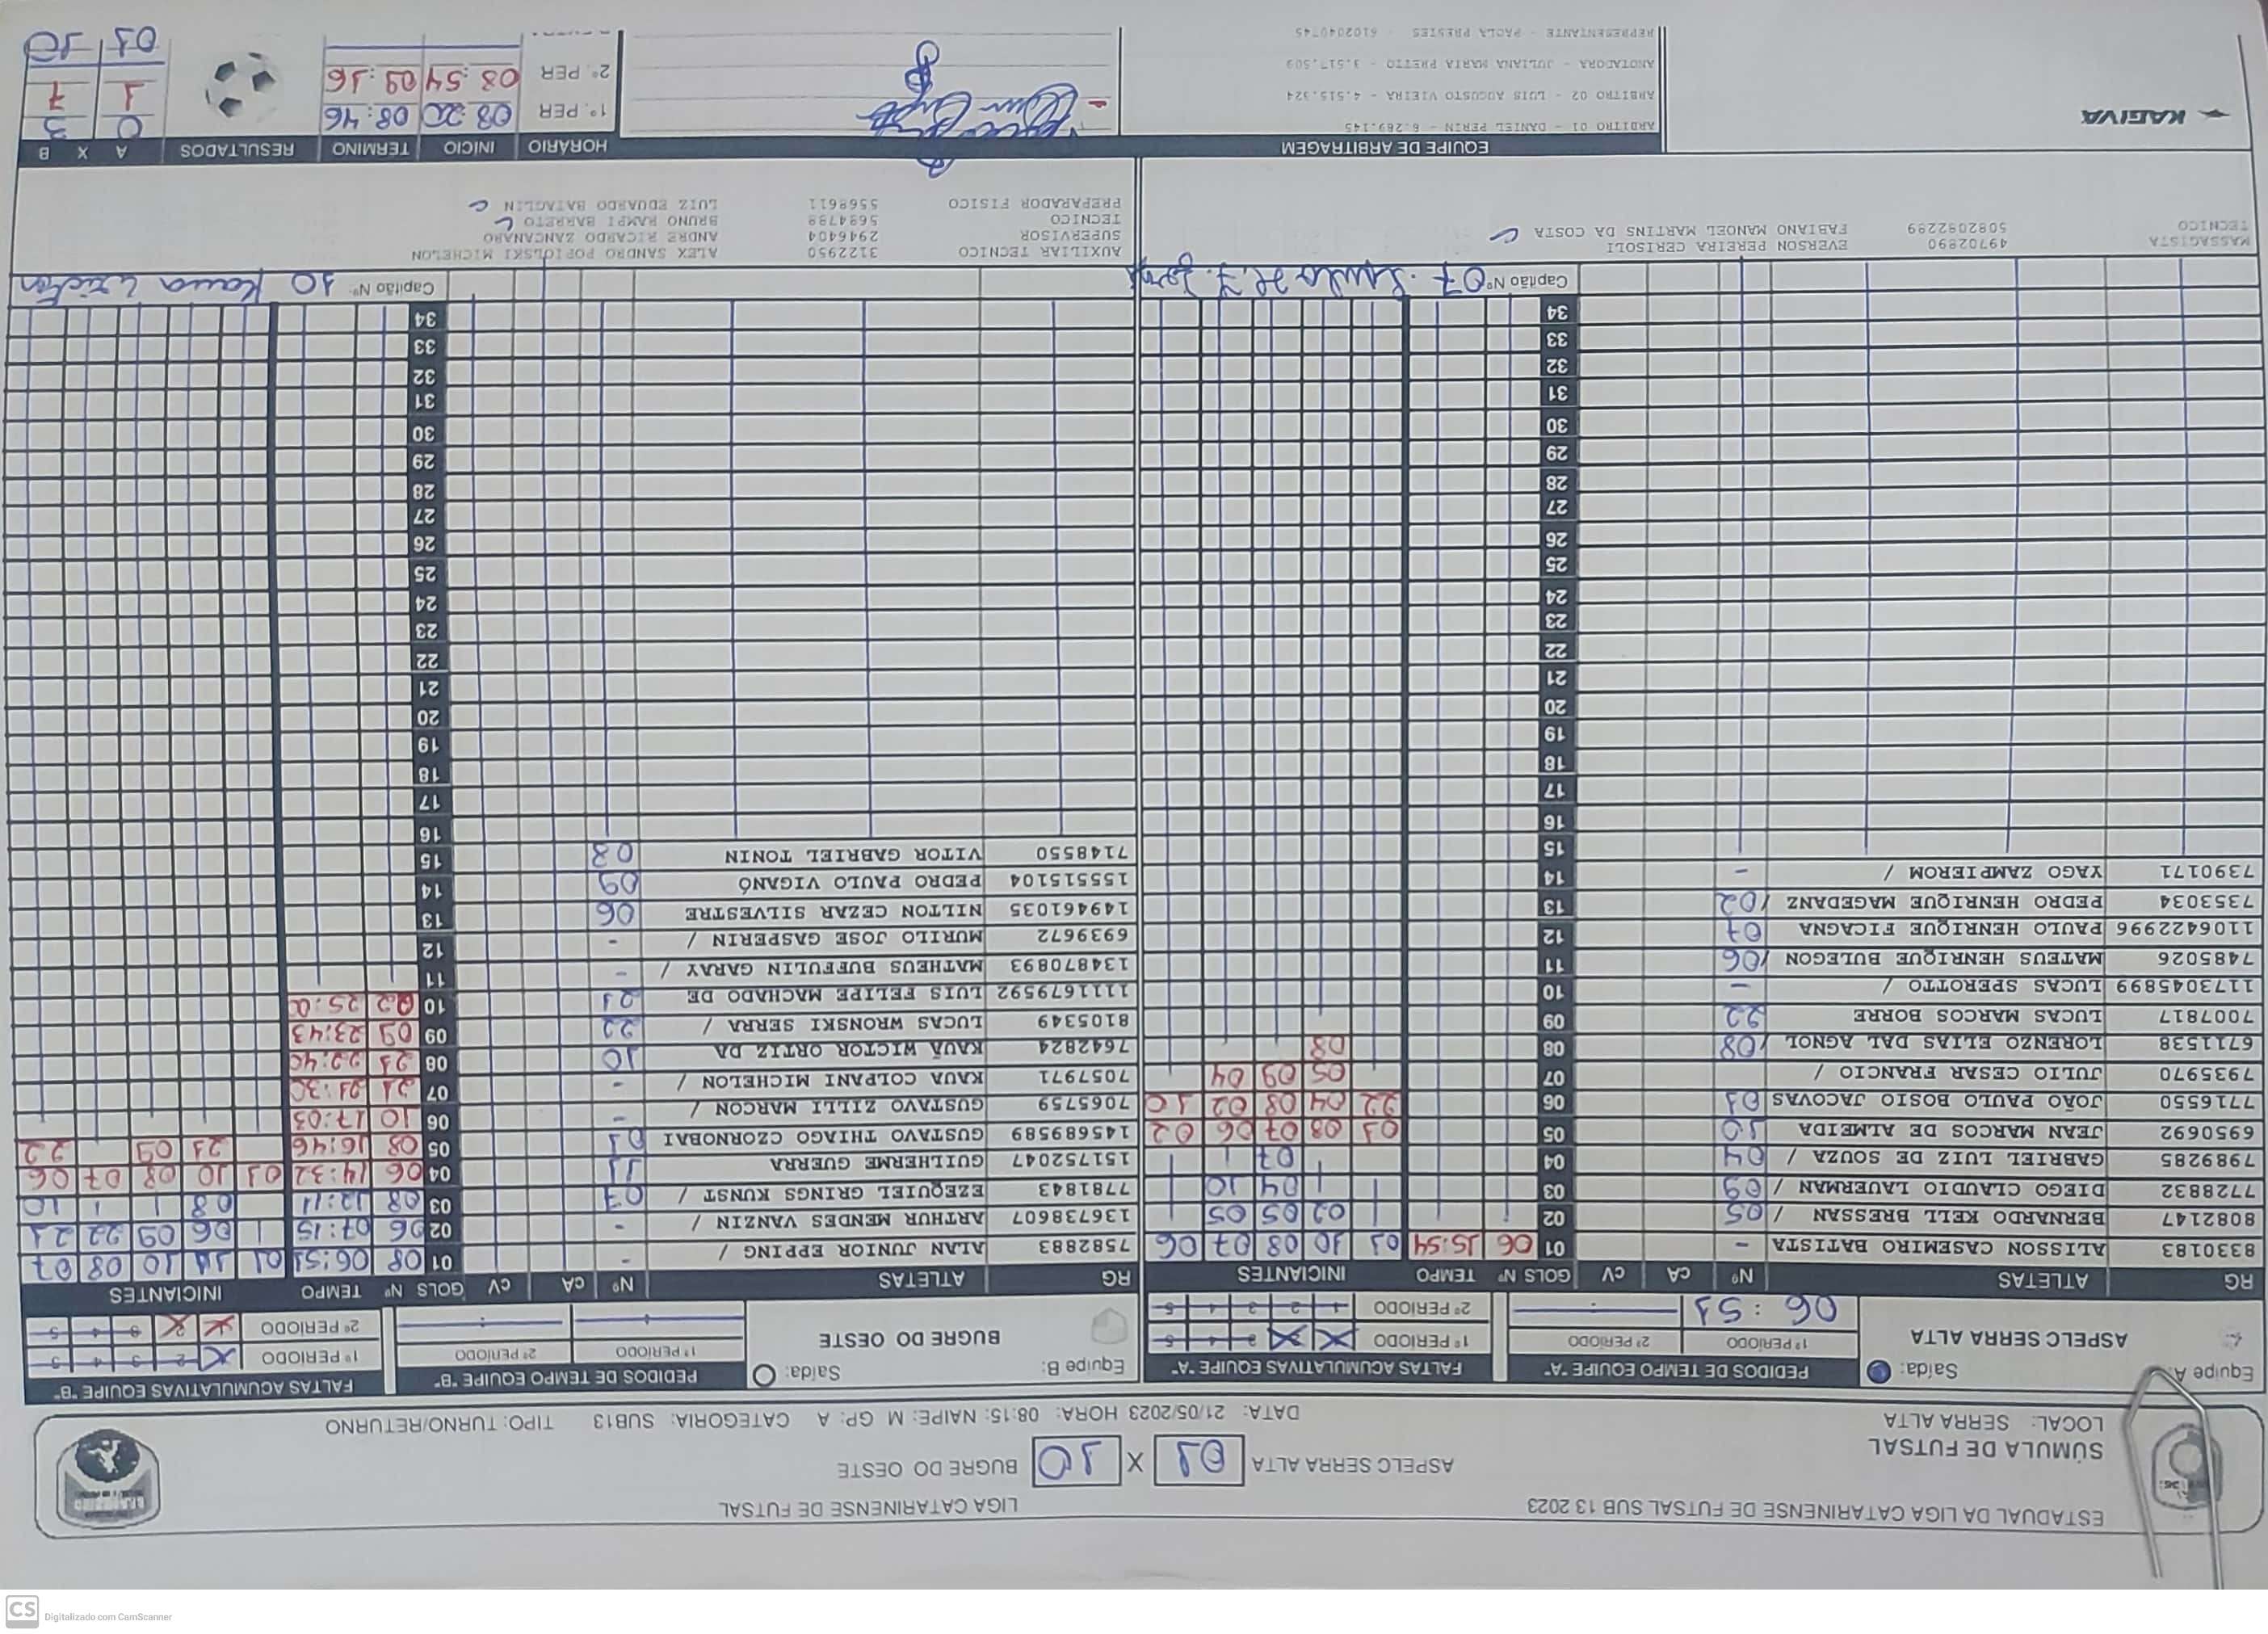 ESTADUAL DA LIGA CATARINENSE DE FUTSAL SUB 13 2023 LIGA CATARINENSE DE FUTSAL
SÚMULA DE FUTSAL
LOCAL: SERRA ALTA
ASPELC SERRA ALTA 01 X 10 BUGRE DO OESTE
DATA: 21/05/2023 HORA: 08:15: NAIPE: M GP: A CATEGORIA: SUB13 TIPO: TURNO/RETURNO
Equipe A: Saída:
ASPELC SERRA ALTA
PEDIDOS DE TEMPO EQUIPE "A"
1º PERIODO 2º PERIODO
06:51 :
FALTAS ACUMULATIVAS EQUIPE "A"
1º PERIODO 3 4 5
2º PERIODO 1 2 3 4 5
RG ATLETAS Nº CA CV GOLS Nº TEMPO INICIANTES
8330183 ALISSON CASEMIRO BATISTA - 01 06 15:54 01 10 08 07 06
8082147 BERNARDO KELL BRESSAN / 05 02 02 05 05
7728832 DIEGO CLAUDIO LAUERMAN / 09 03 04 10
7989285 GABRIEL LUIZ DE SOUZA / 04 04 07
6950692 JEAN MARCOS DE ALMEIDA 10 05 01 08 07 06 02
7716550 JOÃO PAULO BOSIO JACOVAS 01 06 22 04 08 02 10
7935970 JULIO CESAR FRANCIO / 07 05 09 04
6711538 LORENZO ELIAS DAL AGNOL / 08 08 08
7007817 LUCAS MARCOS BORRE 22 09
1173045899 LUCAS SPEROTTO / - 10
7485026 MATEUS HENRIQUE BULEGON / 06 11
11064222996 PAULO HENRIQUE FICAGNA 07 12
7353034 PEDRO HENRIQUE MAGEDANZ / 02 13
7390171 YAGO ZAMPIEROM / - 14
15
16
17
18
19
20
21
22
23
24
25
26
27
28
29
30
31
32
33
34
Capitão Nº 07
MASSAGISTA 49702890 EVERSON PEREIRA CERISOLI
TECNICO 5082082299 FABIANO MANOEL MARTINS DA COSTA
Equipe B: Saída:
BUGRE DO OESTE
PEDIDOS DE TEMPO EQUIPE "B"
1º PERIODO 2º PERIODO
: :
FALTAS ACUMULATIVAS EQUIPE "B"
1º PERIODO 2 3 4 5
2º PERIODO 2 3 4 5
RG ATLETAS Nº CA CV GOLS Nº TEMPO INICIANTES
7582883 ALAN JUNIOR EPPING / - 01 08 06:51 01 11 10 08 07
136738607 ARTHUR MENDES VANZIN / - 02 06 07:15 06 09 22 21
7781843 EZEQUIEL GRINGS KUNST / 07 03 08 12:11 08 10
151752047 GUILHERME GUERRA 11 04 06 14:32 01 10 08 07 06
145689589 GUSTAVO THIAGO CZORNOBAI 01 05 08 16:46 21 09 22
7065759 GUSTAVO ZILLI MARCON / - 06 10 17:03
7057971 KAUA COLPANI MICHELON / - 07 21 21:30
7642824 KAUÃ WICTOR ORTIZ DA 10 08 21 22:40
8105349 LUCAS WRONSKI SERRA / 22 09 09 23:43
1111679592 LUIS FELIPE MACHADO DE 21 10 22 25:00
134870893 MATHEUS BUFFULIN GARAY / - 11
6939672 MURILO JOSE GASPERIN / - 12
149461035 NILTON CEZAR SILVESTRE 06 13
155515104 PEDRO PAULO VIGANÓ 09 14
7148550 VITOR GABRIEL TONIN 08 15
16
17
18
19
20
21
22
23
24
25
26
27
28
29
30
31
32
33
34
Capitão Nº 10 Kaua Wictor
AUXILIAR TECNICO 3122950 ALEX SANDRO POPIOLSKI MICHELON
SUPERVISOR 2946404 ANDRE RICARDO ZANCANARO
TECNICO 5684788 BRUNO RAMPI BARRETO
PREPARADOR FISICO 5568611 LUIZ EDUARDO BATAGLIN
KAGIVA
EQUIPE DE ARBITRAGEM
ARBITRO 01 - DANIEL PERIN - 6.269.145
ARBITRO 02 - LUIS AUGUSTO VIEIRA - 4.515.324
ANOTADORA - JULIANA MARIA PRETTO - 3.517.509
REPRESENTANTE - PAOLA PRESTES - 6102040745
HORÁRIO INÍCIO TERMINO RESULTADOS A X B
1º. PER 08:20 08:46 0 3
2º. PER 08:54 09:16 1 7
01 10
CS Digitalizado com CamScanner